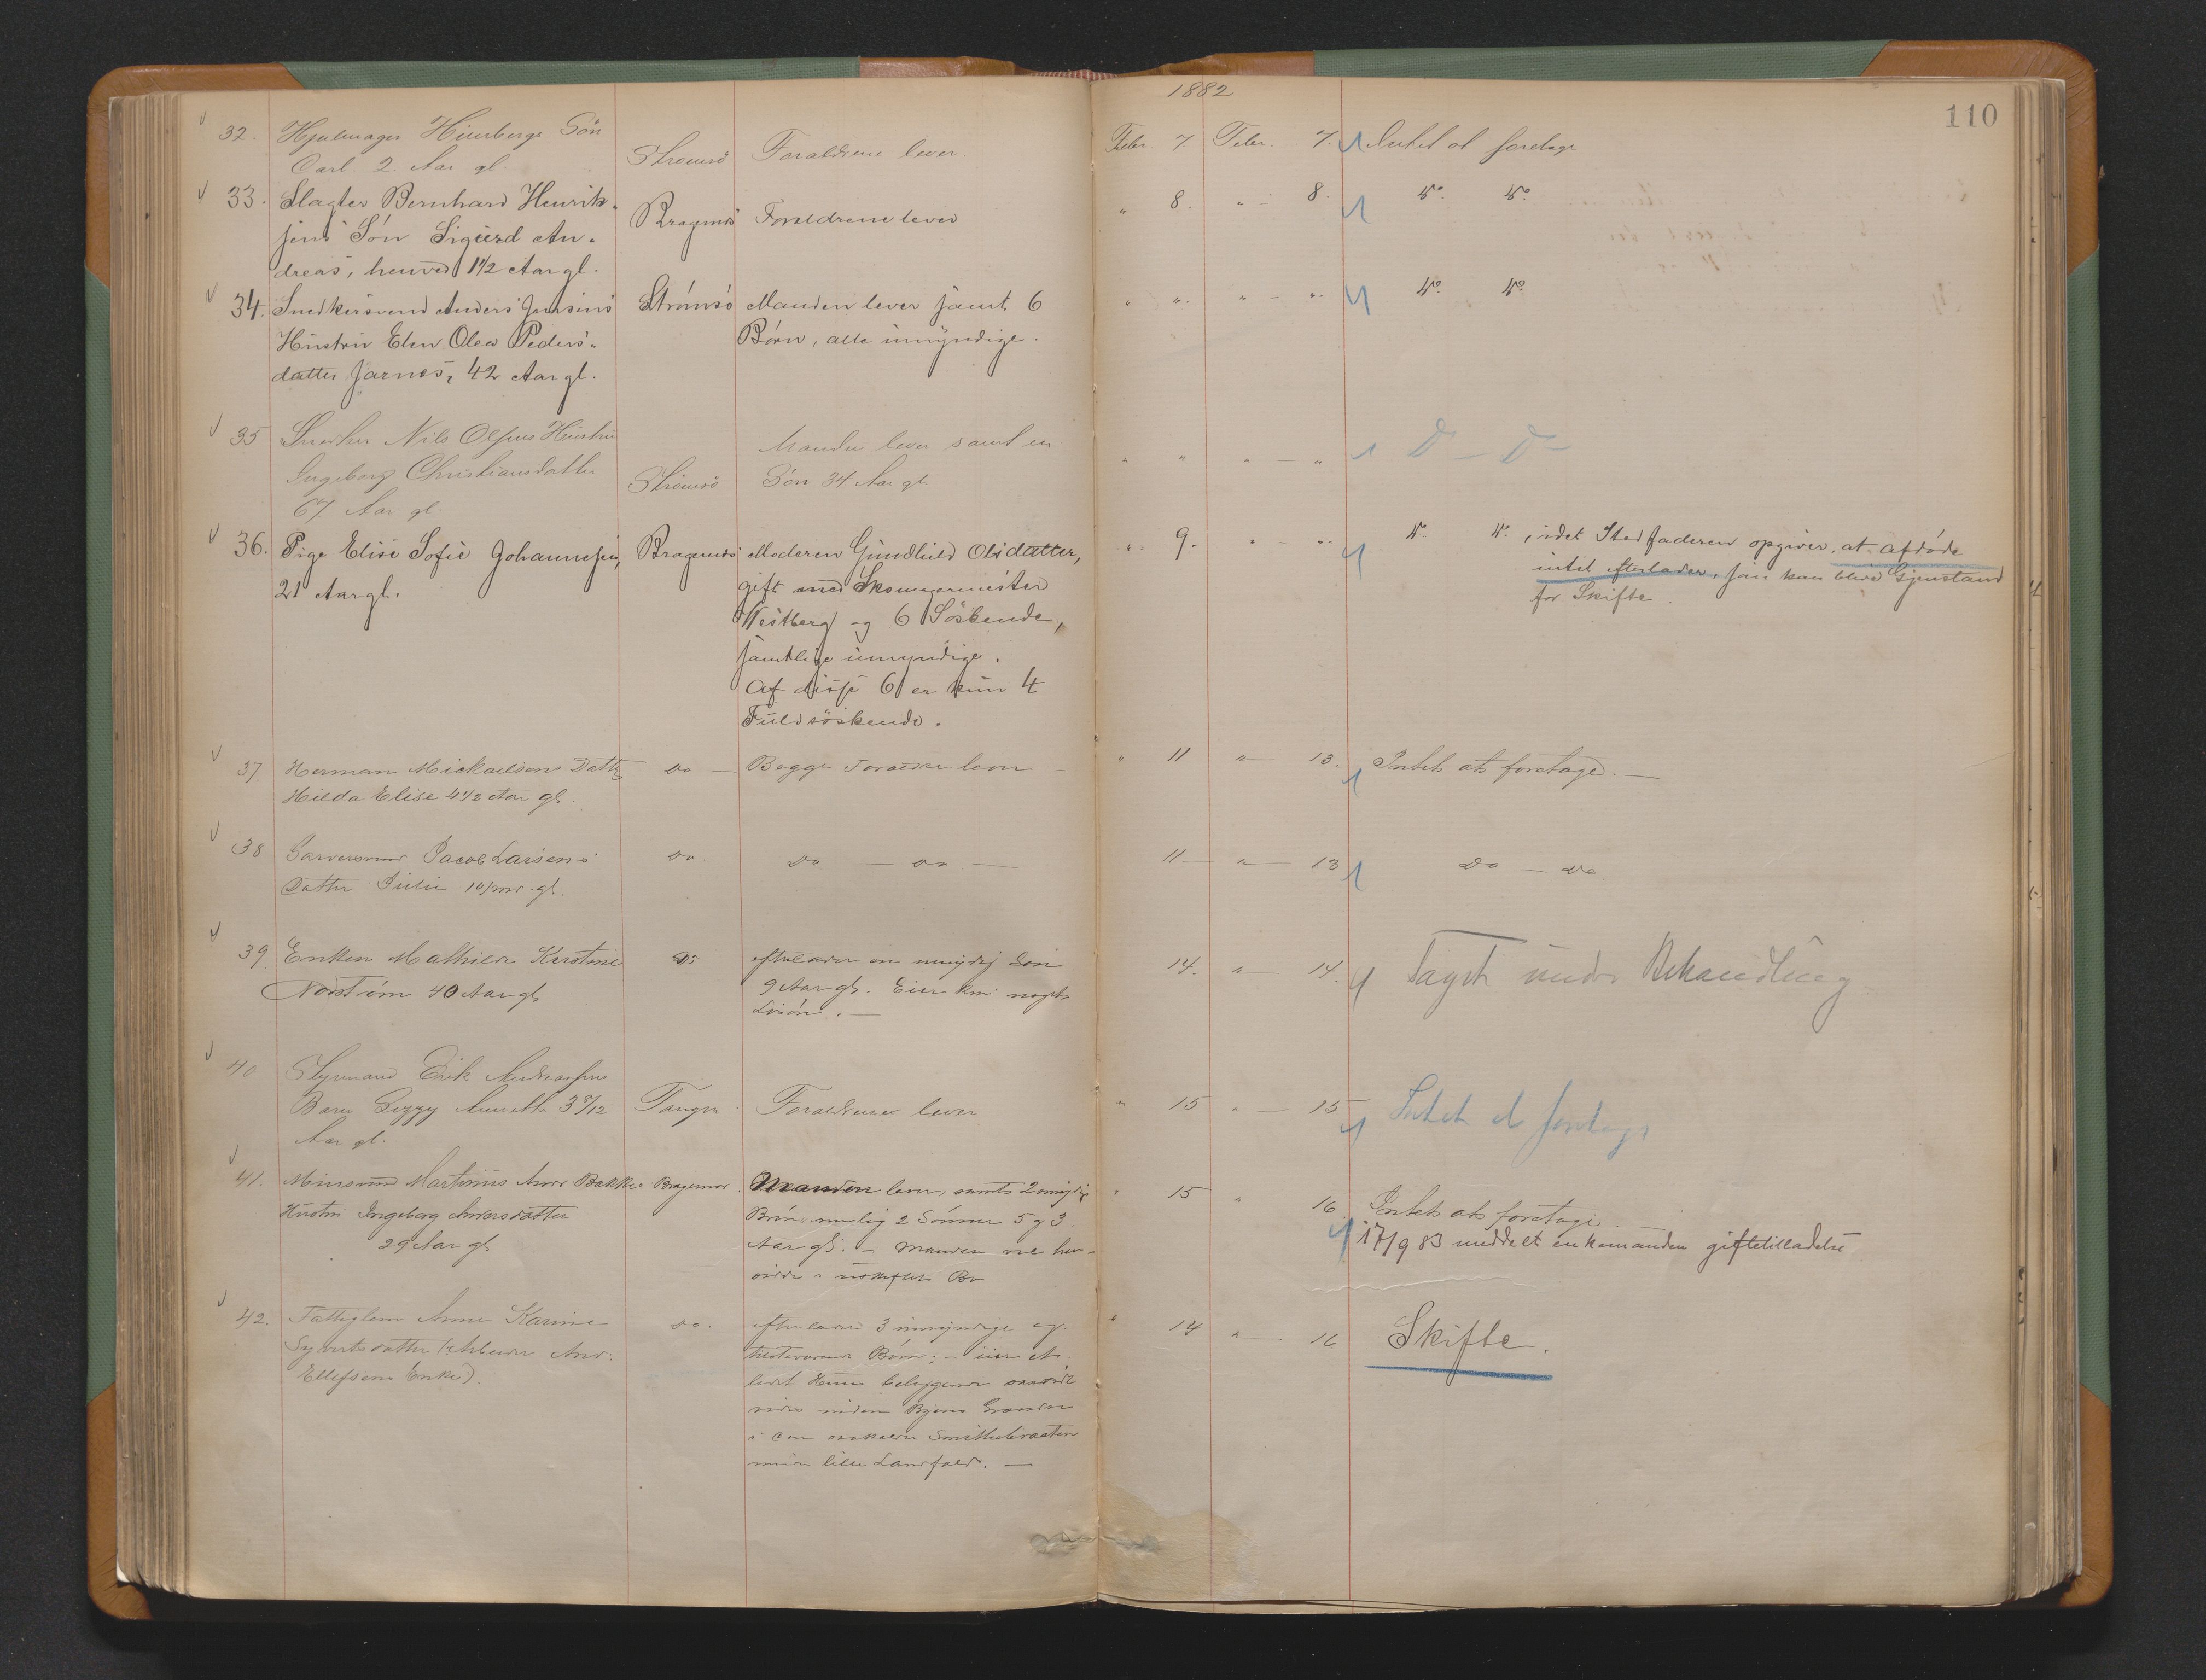 1882
110
32. Hjulmager Himbergs Søn
Carl. 2. Aar gl.
Strømsø
Forældrene lever.
Febr. 7. Febr. 7. Intet at foretage
33. Slagter Bernhard Henrik-
sens Søn Sigurd An-
dreas, henved 1 1/2 Aar gl.
Bragernæs
Forældrene lever
" 8. " - 8. do. do.
34. Snedkersvend Anders Jensens
Hustru Elen Olea Peders-
datter Jarnes, 42 Aar gl.
Strømsø
Manden lever samt 6
Børn, alle umyndige.
" ". " - ". do. do.
35 Snedker Nils Olsens Hustru
Ingeborg Christiansdatter
67 Aar gl.
Strømsø
Manden lever samt en
Søn 34 Aar gl.
" " " - " D - D -
36. Pige Elise Sofie Johannesen,
21 Aar gl.
Bragernæs
Moderen Gundhild Olsdatter,
gift med Skomagermester
Westberg og 6 Söskende,
samtlige umyndige.
Af disse 6 er kun 4
Fuldsöskende.
" 9. " - ". do. do., idet Stedfaderen opgiver, at afdøde
intet efterlader, som kan blive Gjenstand
for Skifte.
37. Herman Mickaelsens Datter
Hilda Elise 4 1/2 Aar gl.
Do -
Begge Forældre lever -
" 11 " - 13. Intet at foretage. -
38 Garversvend Jacob Larsens
Datter Julie 10 mdr. gl.
Do.
Do - Do -
11 - " - 13 Do - Do.
39. Enken Mathilde Kirstine
Nordstrøm 40 Aar gl.
Do
efterlader en umyndig Søn
9 Aar gl. Eier kun noget
Løsøre. -
14. " - 14. Taget under Behandling
40 Styrmand Erik Andreassens
Barn Lizzy Annette 3 9/12
Aar gl.
Tangen
Forældrene lever
" 15 " - 15 Intet at foretage
41. Martinius Andr Bakkes
Hustru Ingeborg Andersdatter
29 Aar gl.
Bragernæs.
Manden lever, samt 2 umyndige
Børn, nemlig 2 Sønner 5 og 3.
Aar gl. - Manden vil hen-
sidde i uskiftet Bo
" 15 " 16. Intet at foretage.
17/9 83 meddelt enkemanden giftetilladelse
42. Fattiglem Anne Karine
Syvertsdatter (Arbeider Andr:
Ellefsens Enke).
Do.
efterlader 3 umyndige og
tilstedeværende Børn; - eier et
lidet Huus beliggende saavidt
vides uden Byens Grændse
i den saakaldte Smithebraaten
under lille Landfald. -
" 14 " - 16 Skifte.